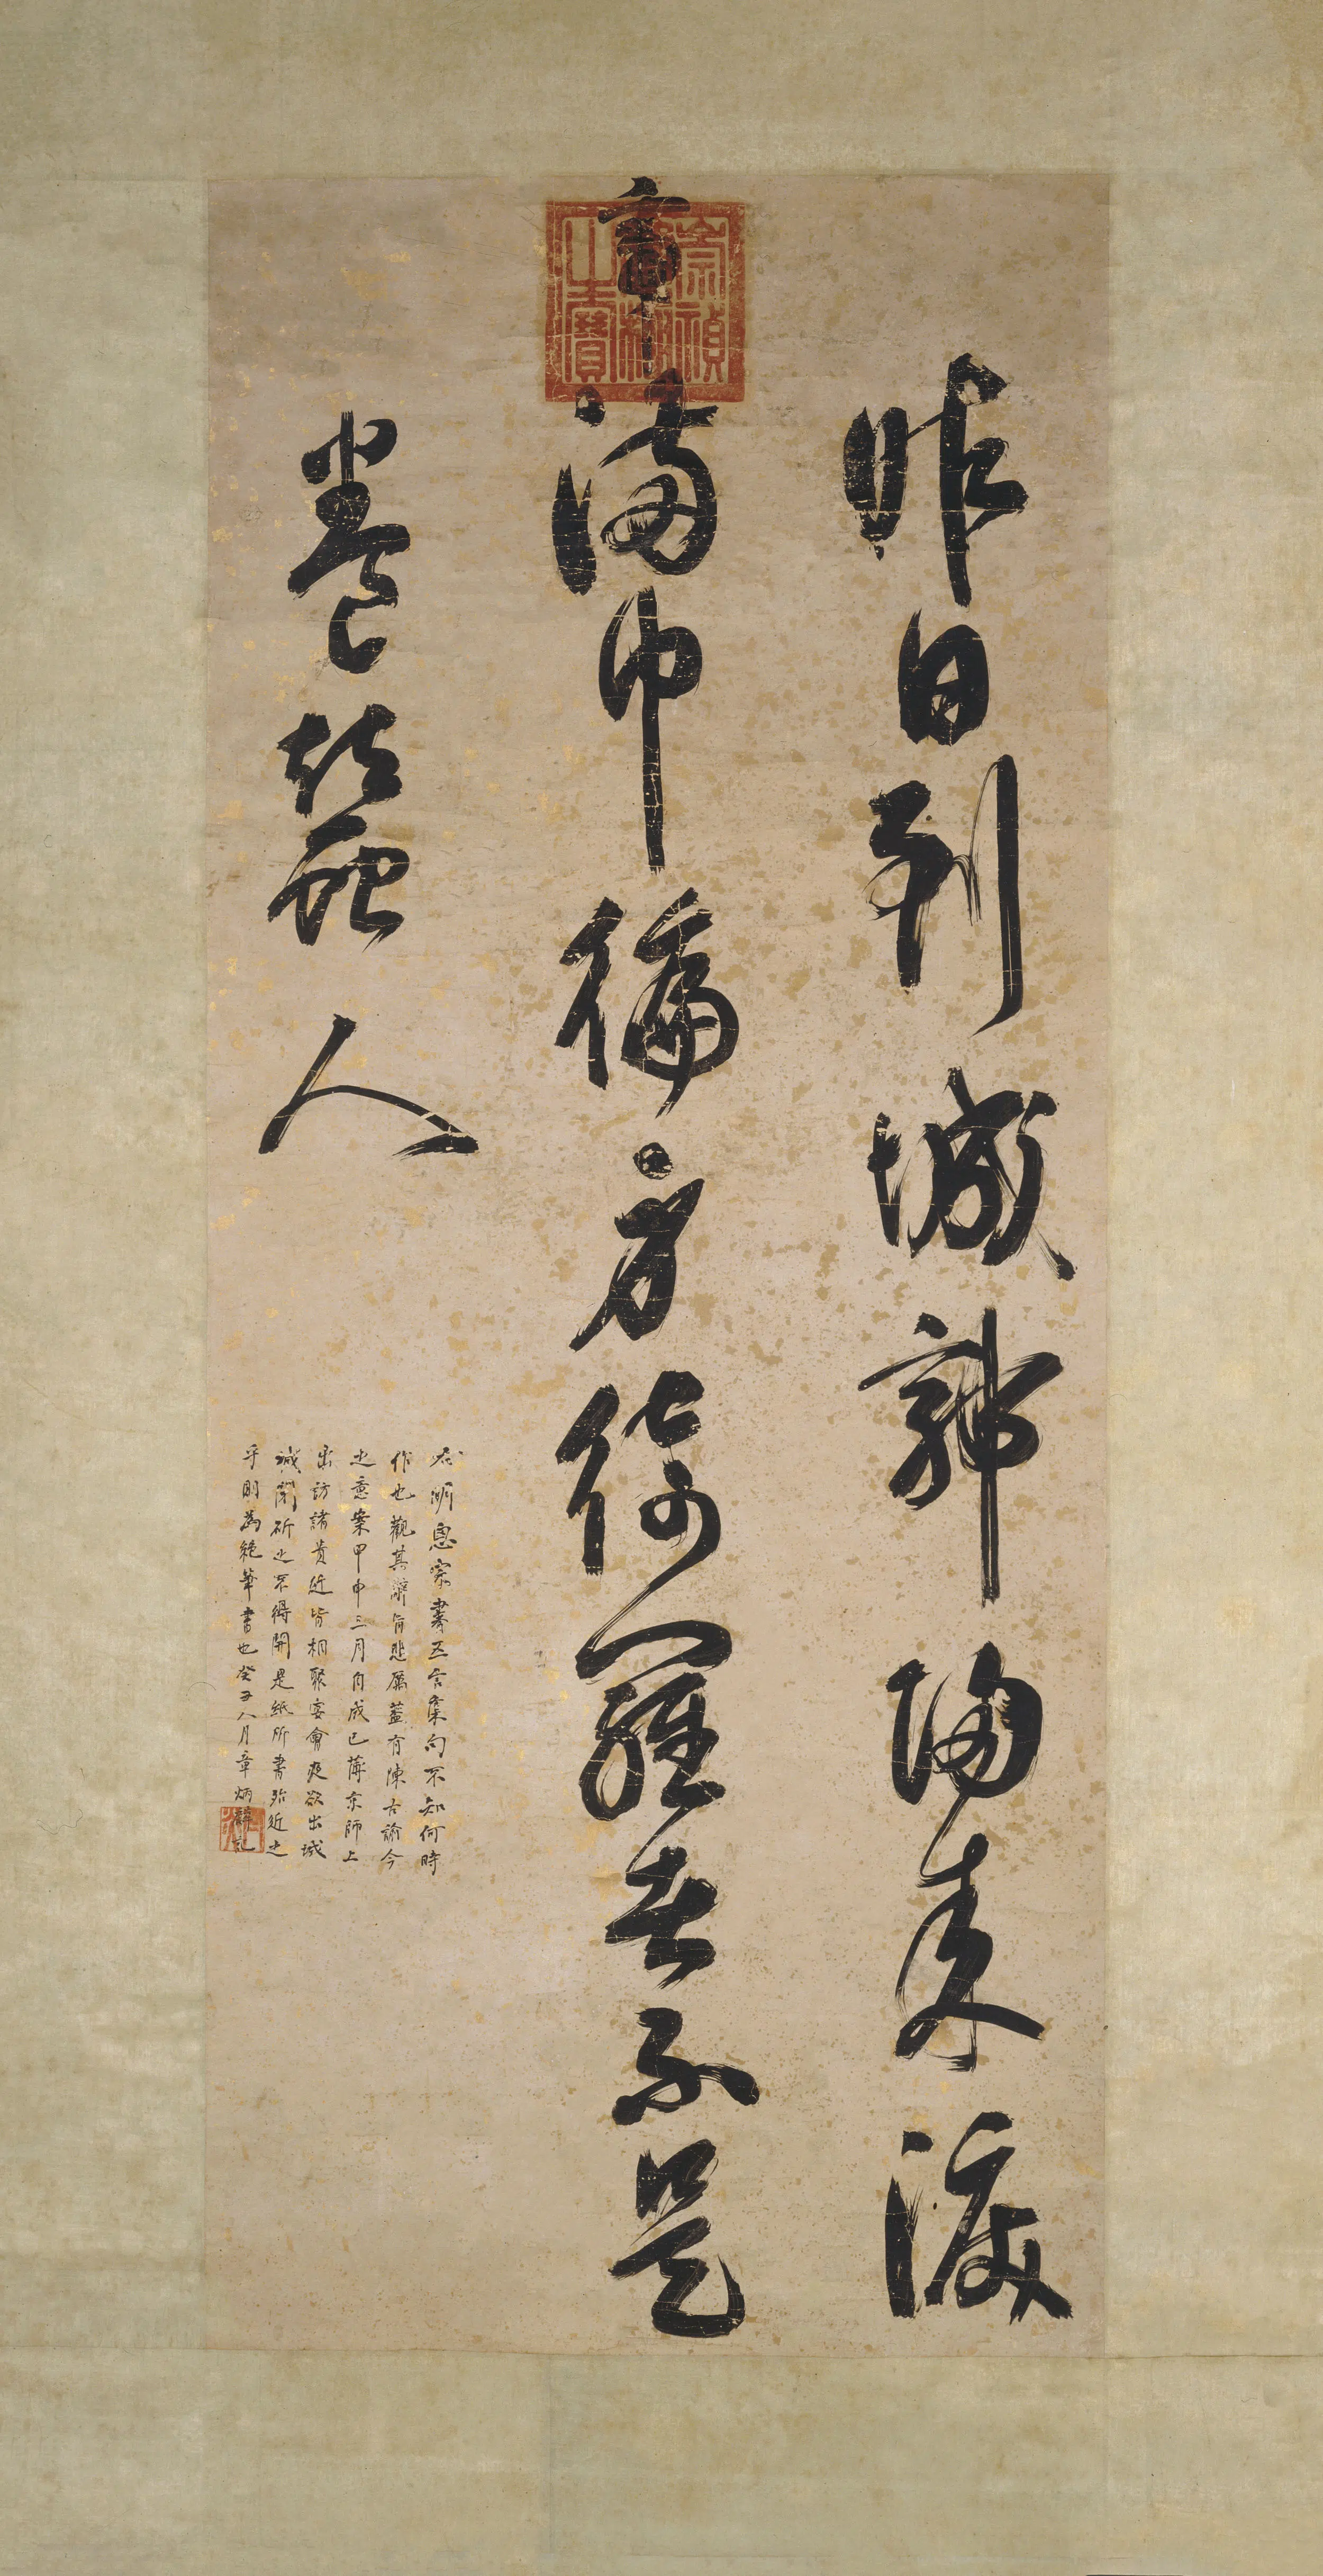 昨日到城郭歸來淚
滿巾徧身綺羅者不是
養蠶人
崇禎建極之寶
右明思宗書五言集句不知何時
作也觀其辭旨悲厲蓋有陳古諭今
之意案甲申三月自成已薄京師上
出訪諸貴近皆相聚宴會夜欲出城
城閉斫之不得開是紙所書殆近之
乎則為絕筆書也癸丑八月章炳麟記